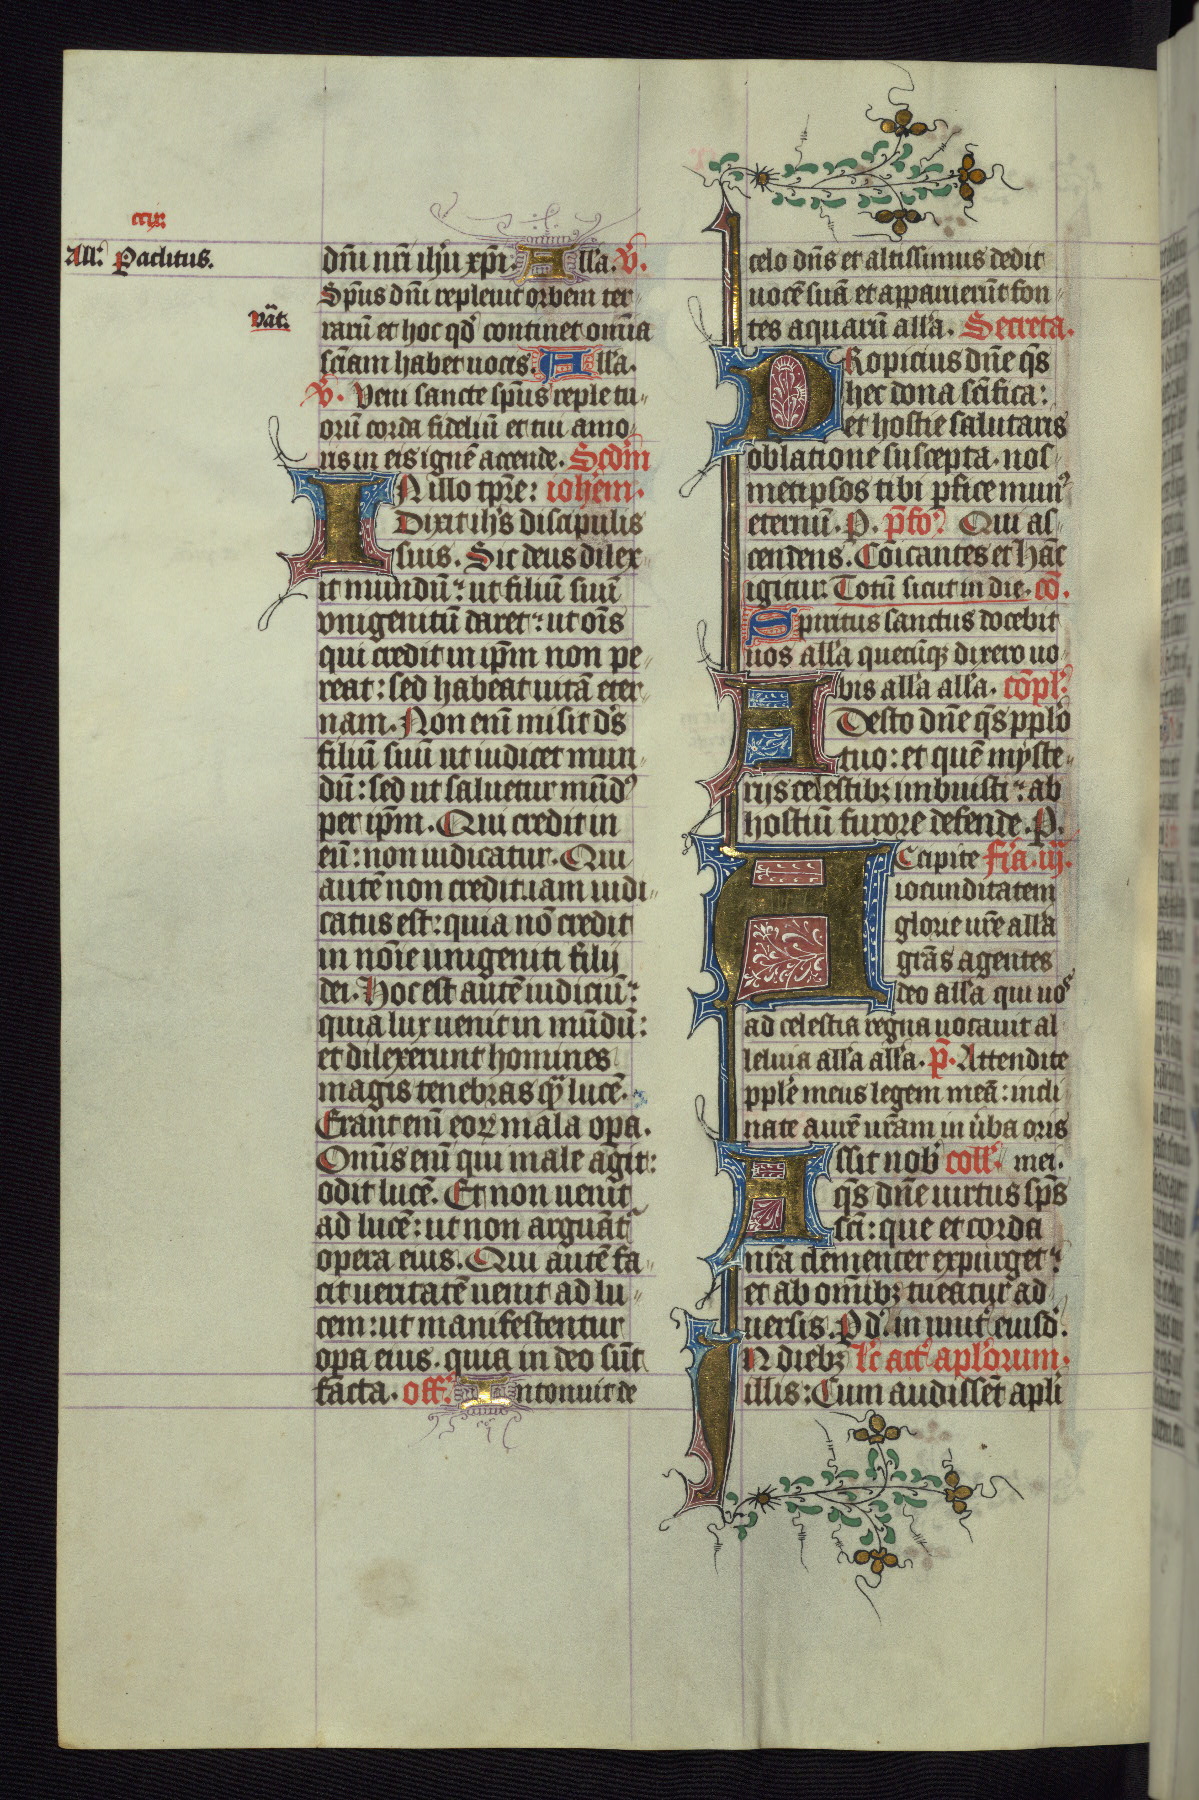 ccix.
All'. Paclitus.
vat̄.
dn̄i nr̄i ih̄u xp̄i. All'a. V̄.
Sp̄us dn̄i repleuit orbem ter
rarū et hoc qd̓ continet om̄ia
scīam habet uocis. All'a.
V̄. Veni sancte sp̄us reple tu
orū corda fideliū et tui amo
ris in eis ignē accende. Scd̄m
IN illo tp̄re: ioh̄em.
Dixit ih̄s discipulis
suis. Sic deus dilex
it mundū: ut filiū suū
vnigenitū daret: ut oīs
qui credit in ip̄m non pe
reat: sed habeat uitā eter
nam. Non enī misit ds̄
filiū suū ut iudicet mun
dū: sed ut saluetur mūdꝰ
per ip̄m. Qui credit in
eū: non iudicatur. Qui
autē non credit: iam iudi
catus est: quia nō credit
in noīe unigeniti filij
dei. Hoc est autē iudiciū:
quia lux uenit in mūdū:
et dilexerunt homines
magis tenebras qͣ̄ lucē.
Erant enī eoꝝ mala opā.
Omīs enī qui male agit:
odit lucē. Et non uenit
ad lucē: ut non arguāt᷑
opera eius. Qui autē fa
cit ueritatē uenit ad lu
cem: ut manifestentur
opā eius. quia in deo sūt
facta. off'. Intonuit de
celo dn̄s et altissimus dedit
uocē suā et apparuerūt fon
tes aquarū all'a. Secreta.
PRopicius dn̄e qs̄
hec dona scīfica:
et hostie salutaris
oblatione suscepta. nos
metipsos tibi ꝑfice munꝰ
eternū. P. p̄fo'. Qui as
cendens. Cōicantes et Hāc
igitur. Totū sicut in die. cō.
Spiritus sanctus docebit
uos all'a quecūqꝫ dixero uo
bis all'a all'a. cōpl'.
ADesto dn̄e qs̄ ppl'o
tuo: et quē myste
rijs celestibꝫ imbuisti: ab
hostiū furore defende. P.
ACcipite fr̄ia. iij.
iocunditatem
glorie ur̄e all'a
grās agentes
deo all'a qui uos
ad celestia regna uocauit al
leluia all'a all'a. p̄. Attendite
ppl'e meus legem meā: incli
nate aurē ur̄am in ū̓ba oris
Assit nob' coll'. mei.
qs̄ dn̄e uirtus sps̄
scī: que et corda
nr̄a clementer expurget:
et ab om̄ibꝫ tueatur ad
uersis. P d'. in unit̄ eiusd'.
IN diebꝫ l'c̄ act' apl'orum.
illis: Cum audissēt apl'i